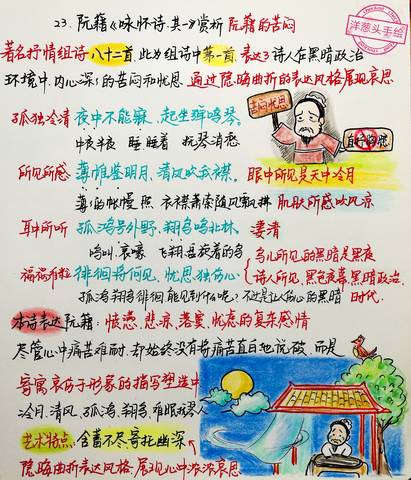 23. 阮籍《咏怀诗·其一》赏析 阮籍的苦闷
洋葱头手绘
著名抒情组诗八十二首,此为组诗中第一首,表达了诗人在黑暗政治
环境中,内心深深的苦闷和忧思 通过隐晦曲折的表达风格展现哀思
孤独冷清 夜中不能寐,起坐弹鸣琴。
中夜半夜 睡,睡着 抚琴消愁
苦闷忧思
直抒胸臆
所见所感 薄帷鉴明月,清风吹我襟。 眼中所见是天中冷月
薄的帐幔 照 衣襟 随风飘拂 肌肤所感吹风凉
耳中所听 孤鸿号外野,翔鸟鸣北林。 凄清
鸣叫,哀嚎 飞翔盘旋着的鸟
徘徊将何见,忧思独伤心。
鸟儿所见的黑暗是黑夜
诗人所见,黑色夜幕,黑暗政治,
孤鸿翔鸟徘徊,能见到什么呢?不过是让人伤心的黑暗 时代
本诗表达阮籍:愤懑,悲凉,落寞,忧虑的复杂感情
尽管心中痛苦难耐,却始终没有将痛苦直白地说破 而是
寄寓哀伤于形象的描写塑造中
冷月,清风,孤鸿,翔鸟,难眠抚琴人
艺术特点:含蓄不尽,寄托幽深
隐晦曲折表达风格,展现心中浓浓哀思